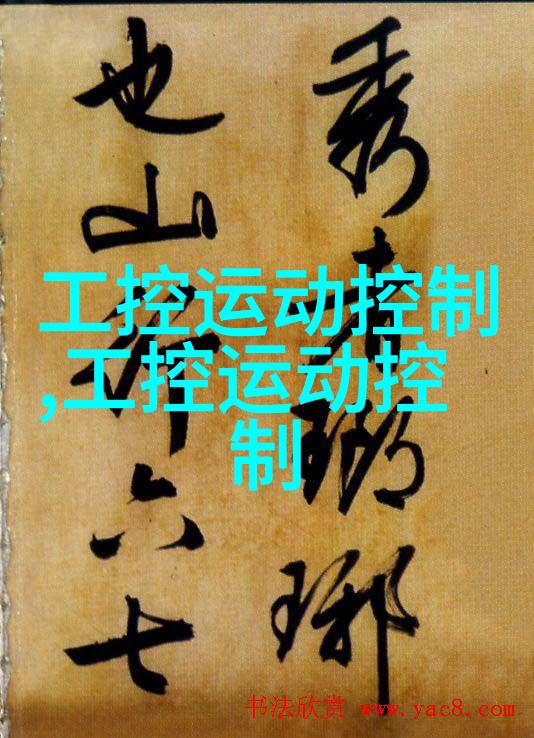 秀者瑯琊
也山行六七
工控运动控制
,工控运动控
制
书法欣赏 www.yac8.com